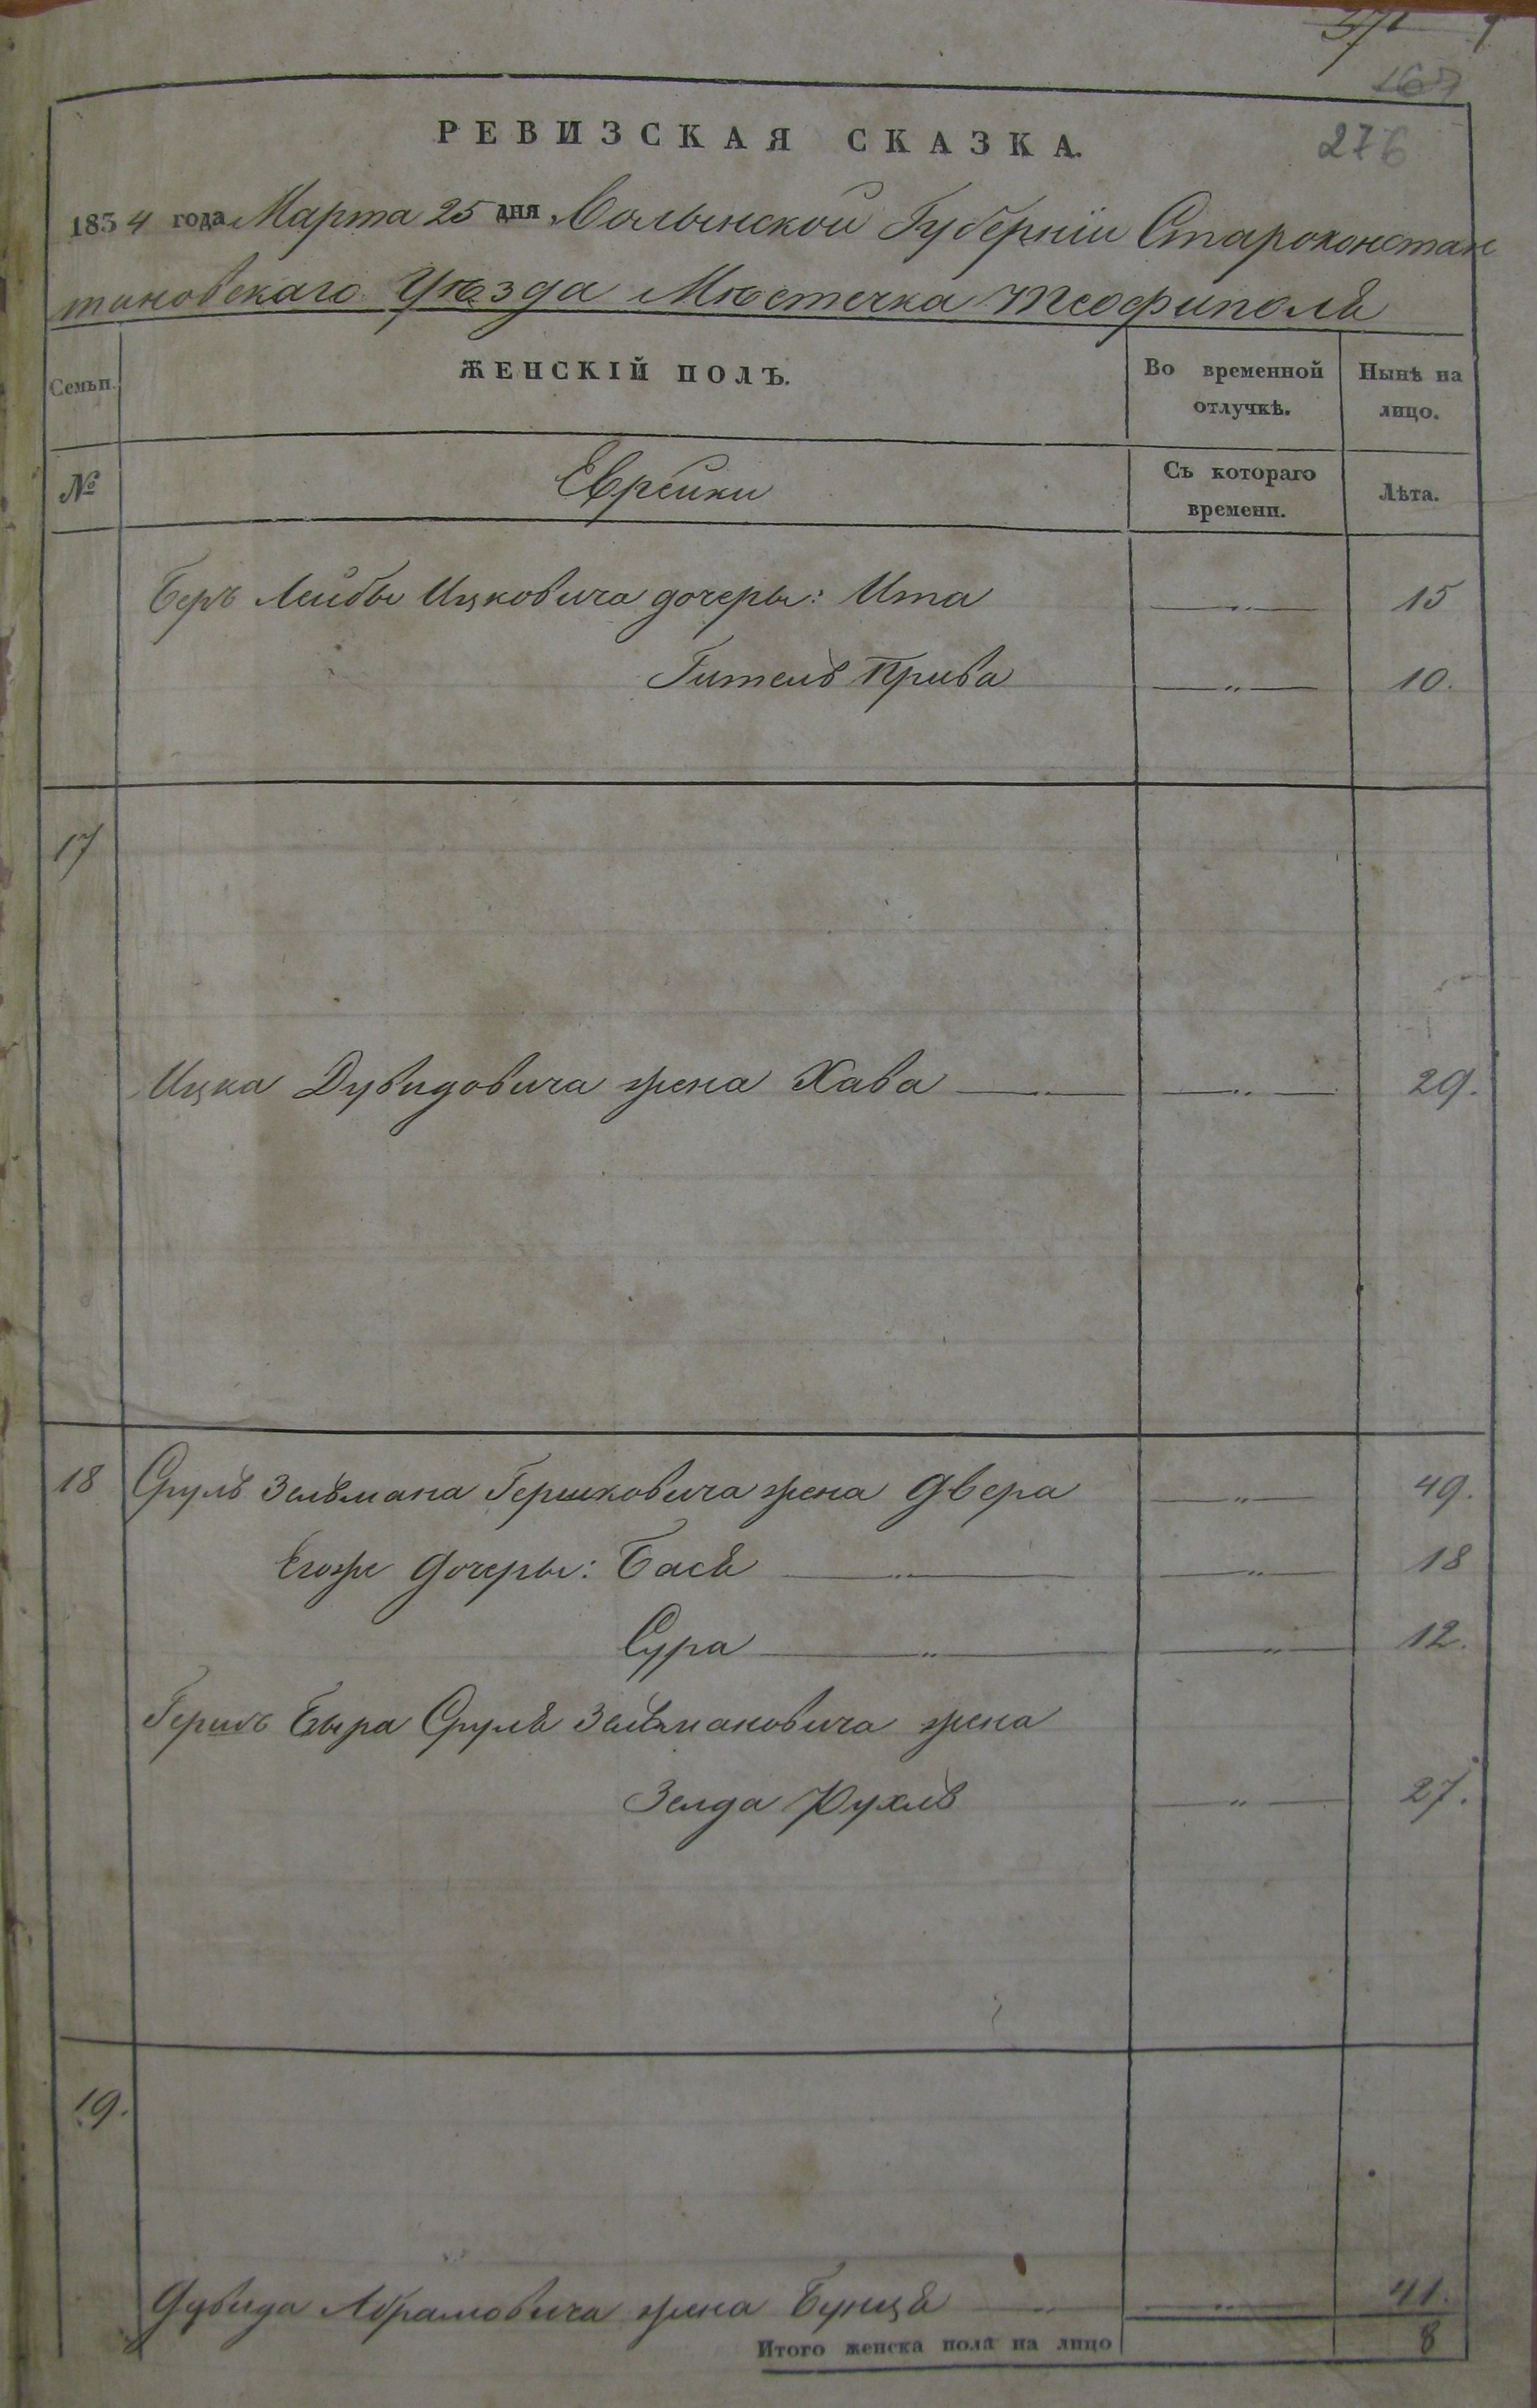 271
167
276
РЕВИЗСКАЯ СКАЗКА.
1854 года Марта 25 дня Волынской Губернiи Староконстан
тиновскаго Уѣзда Мѣстечка Теофиполя
Семьи.
ЖЕНСКІЙ ПОЛЪ.
Во временной отлучкѣ.
Нынѣ на лицо.
№
Еврейки
Съ котораго времени.
Лѣта.
Беръ Лейбы Ицковича дочеры: Ита —„— 15
Гитель Прива —„— 10.
17
Ицка Дувидовича жена Хава —„— —„— 29.
18 Сруль Зельмана Гершковича жена Двера —„— 49.
Егоже дочеры: Бася —„— —„— 18
Сура —„— —„— 12.
Гершъ Бэра Сруля Зельмановича жена
Зелда Рухль —„— 27.
19.
Дувида Абрамовича жена Бунця —„— —„— 41.
Итого женска пола на лицо 8